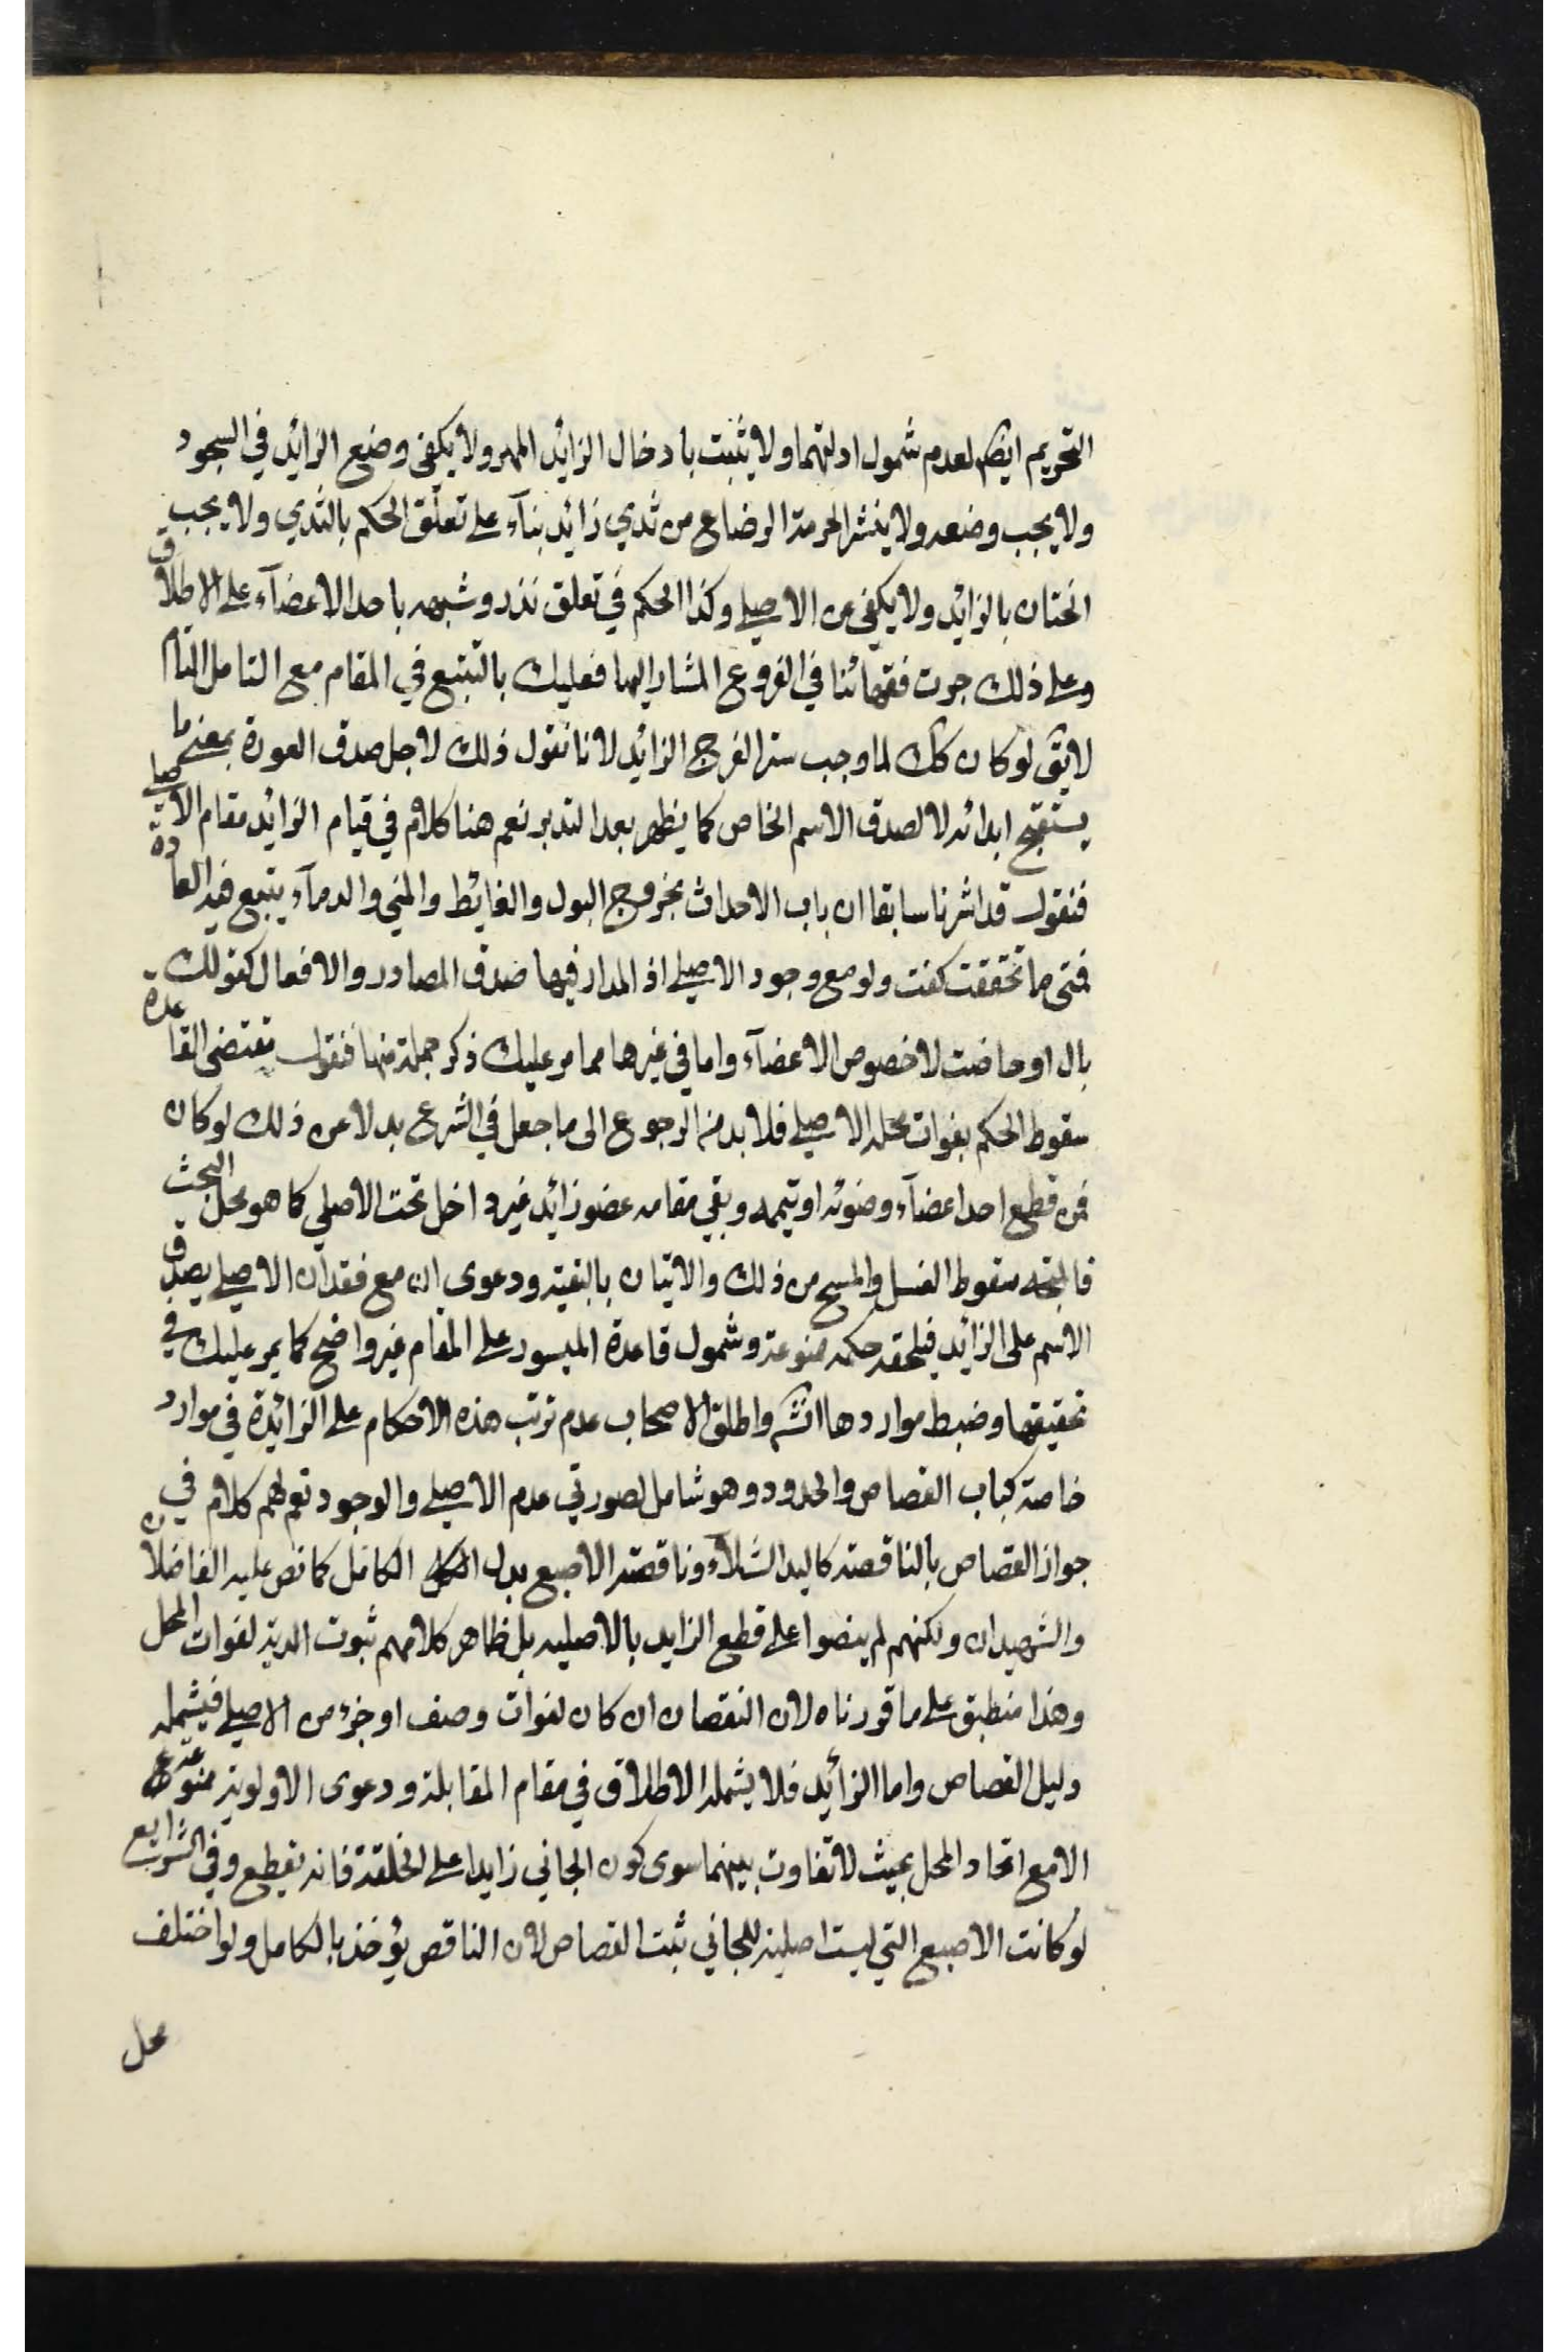 التحريم ايضا لعدم شمول ادلتهما ولا يثبت بادخال الزائد المهر ولا يكفى وضع الزائد في السجود
ولا يجب وضعه ولا ينشر الحرمة الرضاع من ثدي زائد بنآء على تعلق الحكم بالثدي ولا يجب
الختان بالزائد ولا يكفي عن الاصيلي وكذا الحكم في تعلق نذر وشبهه باحد الاعضآء على الاطلاق
وعلى ذلك جرت فقهائنا في الفروع المشار اليها فعليك بالتتبع في المقام مع التامل التام
لا يق لو كان كك لما وجب ستر الفرج الزائد لانا نقول ذلك لاجل صدق العورة بمعنى ما
يستقبح ابدائه لا لصدق الاسم الخاص كما يظهر بعد التدبر نعم هنا كلام في قيام الزائد مقام الاصيلي
فنقول قد اشرنا سابقا ان باب الاحداث بخروج البول والغائط والمني والدمآء يتبع فيه العادة
فمتى ما تحققت كفت ولو مع وجود الاصيلي اذ المدار فيها صدق المصادر والافعال كقولك
بال او حاضت لا خصوص الاعضآء واما في غيرها مما مر عليك ذكر جملة منها فنقول مقتضى القاعدة
سقوط الحكم بفوات محله الاصيلي فلا بد من الرجوع الى ما جعل في الشرع بدلا عن ذلك لو كان
فمن قطع احد اعضآء وضوئه او تيممه وبقي مقامه عضو زائد غير داخل تحت الاصلي كما هو محل البحث
فالمتجه سقوط الغسل والمسح من ذلك والاتيان بالبقية ودعوى ان مع فقدان الاصيلي يصدق
الاسم على الزائد فيلحقه حكمه ممنوعة وشمول قاعدة الميسور على المقام غير واضح كما يمر عليك في
تحقيقها وضبط مواردها انشه واطلق الاصحاب عدم ترتب هذه الاحكام على الزائدة في موارد
خاصة كباب القصاص والحدود وهو شامل لصورتي عدم الاصيلي والوجود نعم لهم كلام في
جواز القصاص بالناقصة كاليد الشلآء وناقصة الاصبع بدل الكامل كما نص عليه الفاضلان
والشهيدان ولكنهم لم ينصوا على قطع الزايد بالاصليه بل ظاهر كلامهم ثبوت الدية لفوات المحل
وهذا منطبق على ما قررناه لان النقصان ان كان لفوات وصف او جزء من الاصيلي فيشمله
دليل القصاص واما الزائد فلا يشمله الاطلاق في مقام المقابلة ودعوى الاولوية ممنوعة
الا مع اتحاد المحل بحيث لا تفاوت بينهما سوى كون الجاني زايدا على الخلقة فانه يقطع وفي الشرايع
لو كانت الاصبع التي ليست اصلية للجاني ثبت القصاص لان الناقص يؤخذ بالكامل ولو اختلف
محل